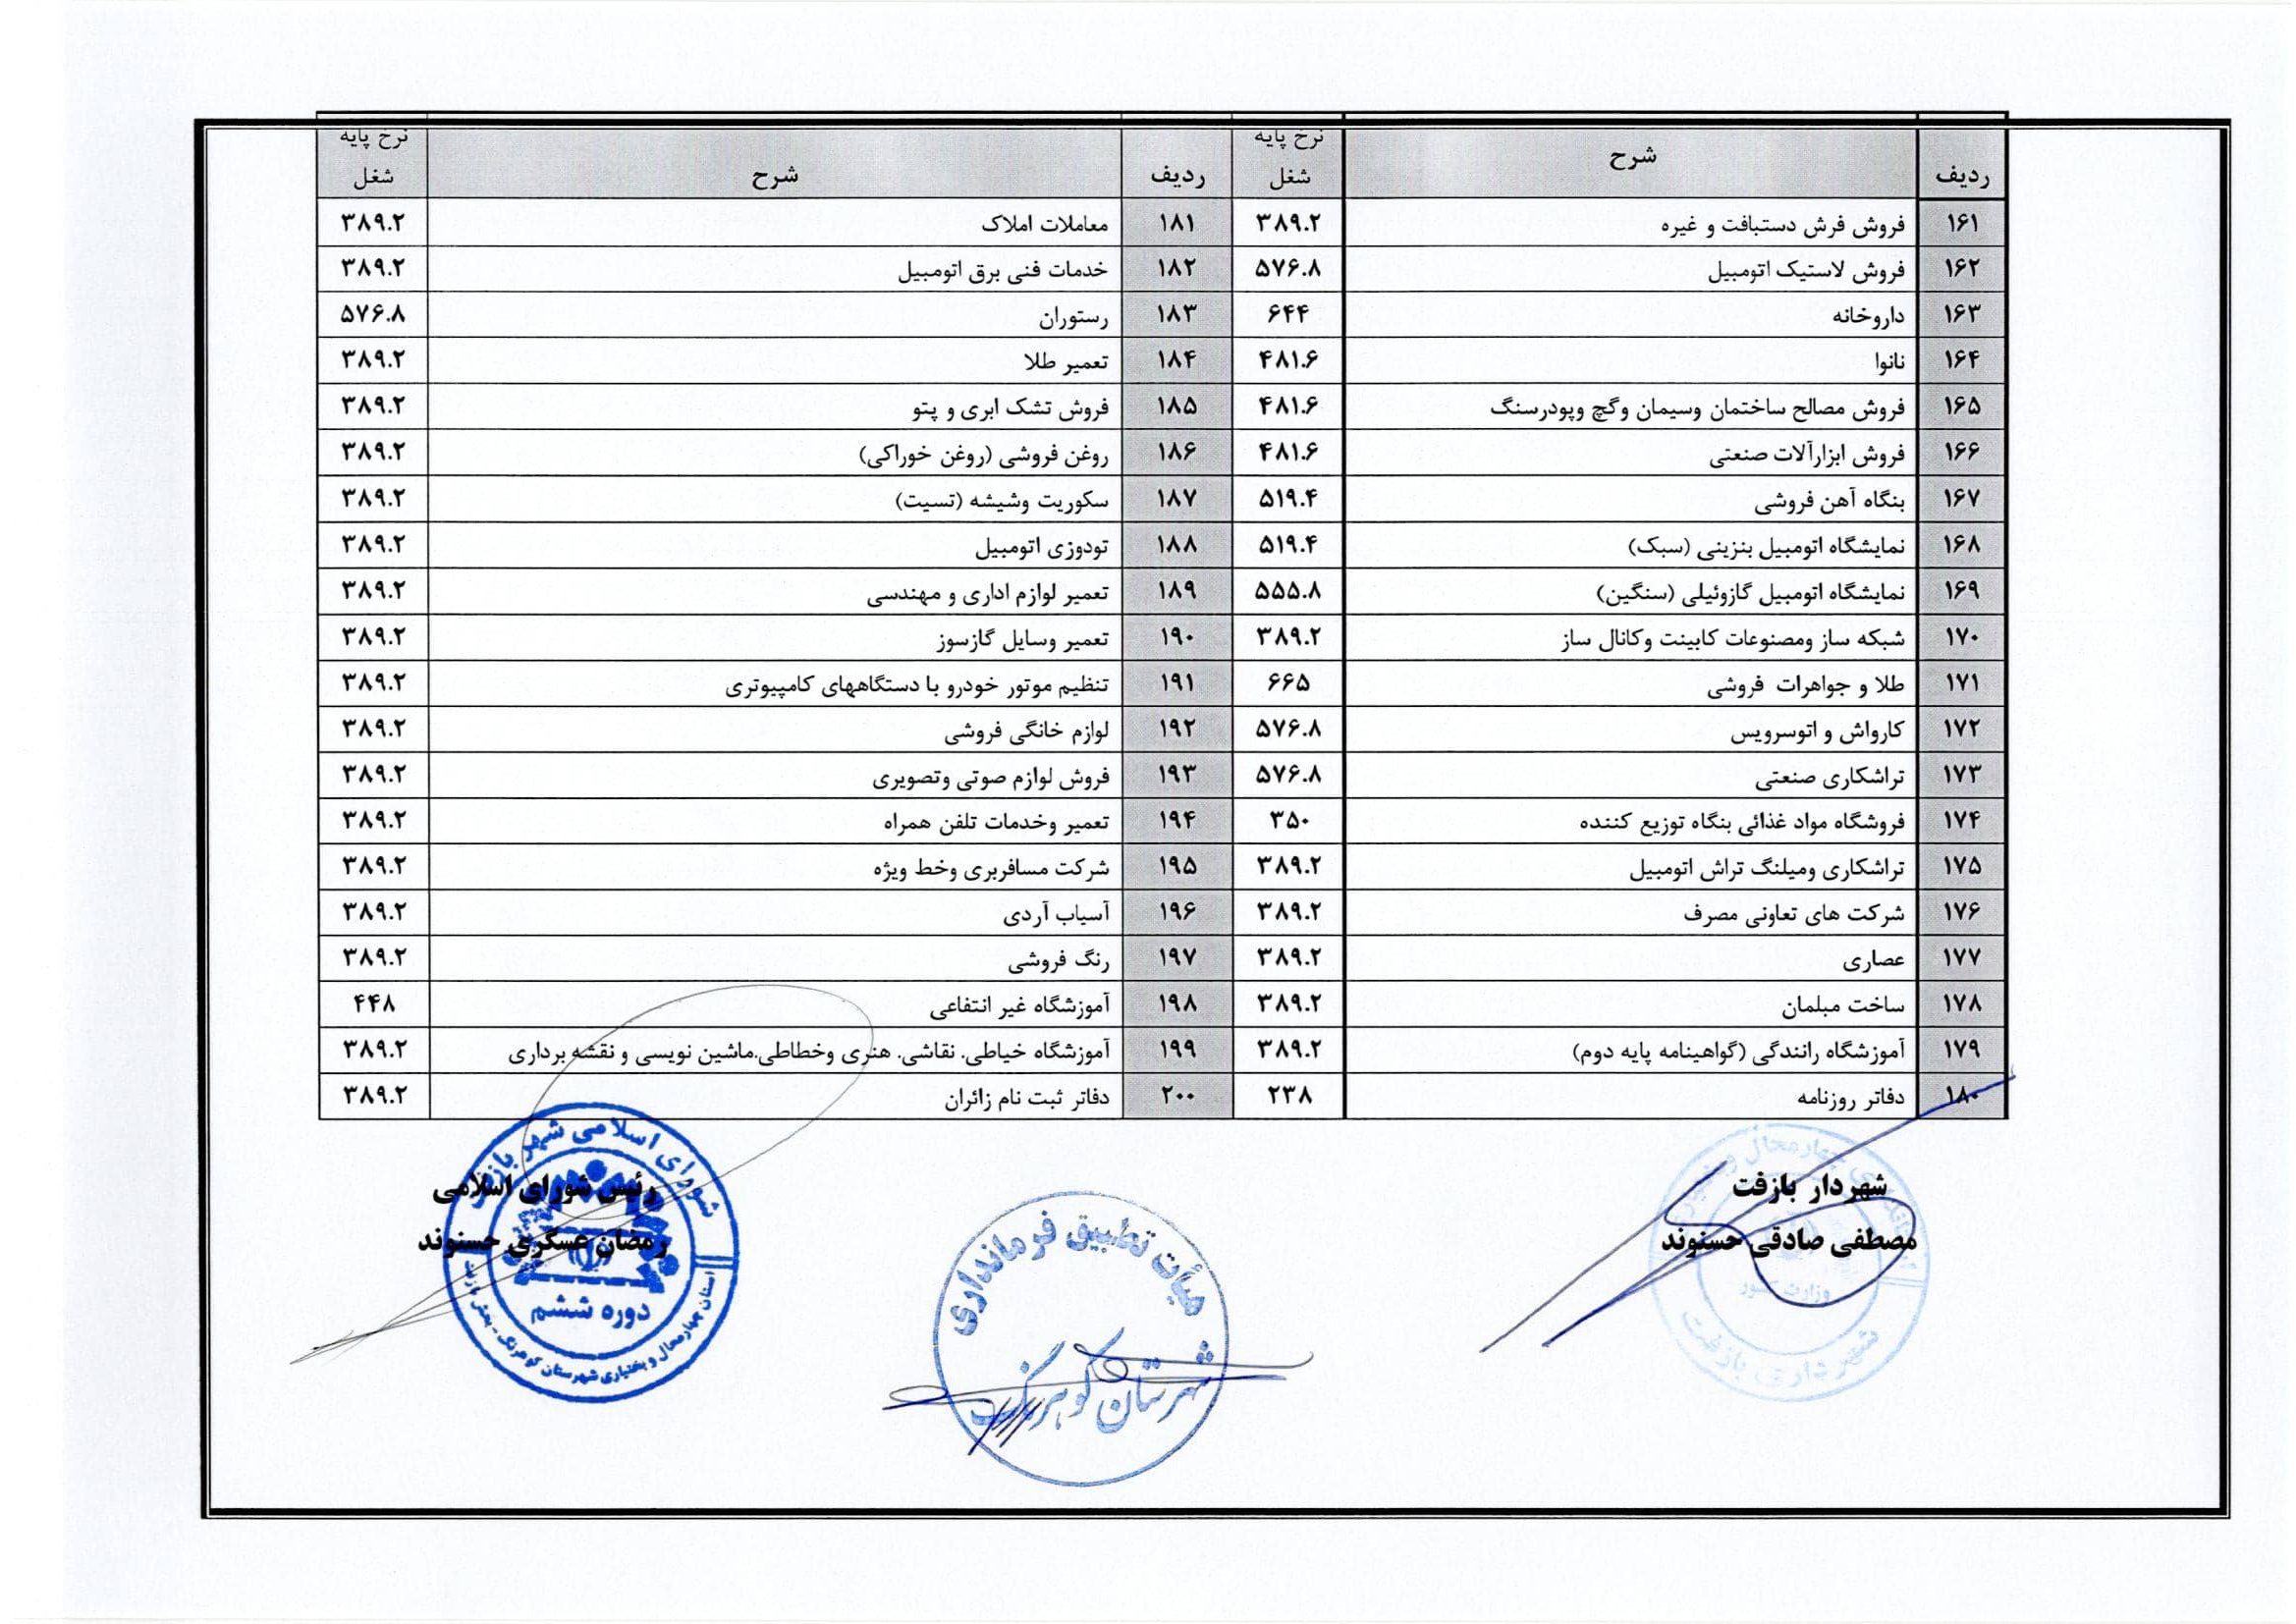 ردیف شرح نرخ پایه شغل ردیف شرح نرخ پایه شغل
۱۶۱ فروش فرش دستبافت و غیره ۳۸۹.۲ ۱۸۱ معاملات املاک ۳۸۹.۲
۱۶۲ فروش لاستیک اتومبیل ۵۷۶.۸ ۱۸۲ خدمات فنی برق اتومبیل ۳۸۹.۲
۱۶۳ داروخانه ۶۴۴ ۱۸۳ رستوران ۵۷۶.۸
۱۶۴ نانوا ۴۸۱.۶ ۱۸۴ تعمیر طلا ۳۸۹.۲
۱۶۵ فروش مصالح ساختمان وسیمان وگچ وپودرسنگ ۴۸۱.۶ ۱۸۵ فروش تشک ابری و پتو ۳۸۹.۲
۱۶۶ فروش ابزارآلات صنعتی ۴۸۱.۶ ۱۸۶ روغن فروشی (روغن خوراکی) ۳۸۹.۲
۱۶۷ بنگاه آهن فروشی ۵۱۹.۴ ۱۸۷ سکوریت وشیشه (تسیت) ۳۸۹.۲
۱۶۸ نمایشگاه اتومبیل بنزینی (سبک) ۵۱۹.۴ ۱۸۸ تودوزی اتومبیل ۳۸۹.۲
۱۶۹ نمایشگاه اتومبیل گازوئیلی (سنگین) ۵۵۵.۸ ۱۸۹ تعمیر لوازم اداری و مهندسی ۳۸۹.۲
۱۷۰ شبکه ساز ومصنوعات کابینت وکانال ساز ۳۸۹.۲ ۱۹۰ تعمیر وسایل گازسوز ۳۸۹.۲
۱۷۱ طلا و جواهرات فروشی ۶۶۵ ۱۹۱ تنظیم موتور خودرو با دستگاههای کامپیوتری ۳۸۹.۲
۱۷۲ کارواش و اتوسرویس ۵۷۶.۸ ۱۹۲ لوازم خانگی فروشی ۳۸۹.۲
۱۷۳ تراشکاری صنعتی ۵۷۶.۸ ۱۹۳ فروش لوازم صوتی وتصویری ۳۸۹.۲
۱۷۴ فروشگاه مواد غذائی بنگاه توزیع کننده ۳۵۰ ۱۹۴ تعمیر وخدمات تلفن همراه ۳۸۹.۲
۱۷۵ تراشکاری ومیلنگ تراش اتومبیل ۳۸۹.۲ ۱۹۵ شرکت مسافربری وخط ویژه ۳۸۹.۲
۱۷۶ شرکت های تعاونی مصرف ۳۸۹.۲ ۱۹۶ آسیاب آردی ۳۸۹.۲
۱۷۷ عصاری ۳۸۹.۲ ۱۹۷ رنگ فروشی ۳۸۹.۲
۱۷۸ ساخت مبلمان ۳۸۹.۲ ۱۹۸ آموزشگاه غیر انتفاعی ۴۴۸
۱۷۹ آموزشگاه رانندگی (گواهینامه پایه دوم) ۳۸۹.۲ ۱۹۹ آموزشگاه خیاطی. نقاشی. هنری وخطاطی.ماشین نویسی و نقشه برداری ۳۸۹.۲
۱۸۰ دفاتر روزنامه ۲۳۸ ۲۰۰ دفاتر ثبت نام زائران ۳۸۹.۲
شهردار بازفت
مصطفی صادقی حسنوند
وزارت کشور
شهرداری بازفت
هیأت تطبیق فرمانداری
شهرستان کوهرنگ
شورای اسلامی شهر بازفت
رئیس شورای اسلامی
رمضان عسگری حسنوند
دوره ششم
استان چهارمحال و بختیاری شهرستان کوهرنگ - بخش بازفت